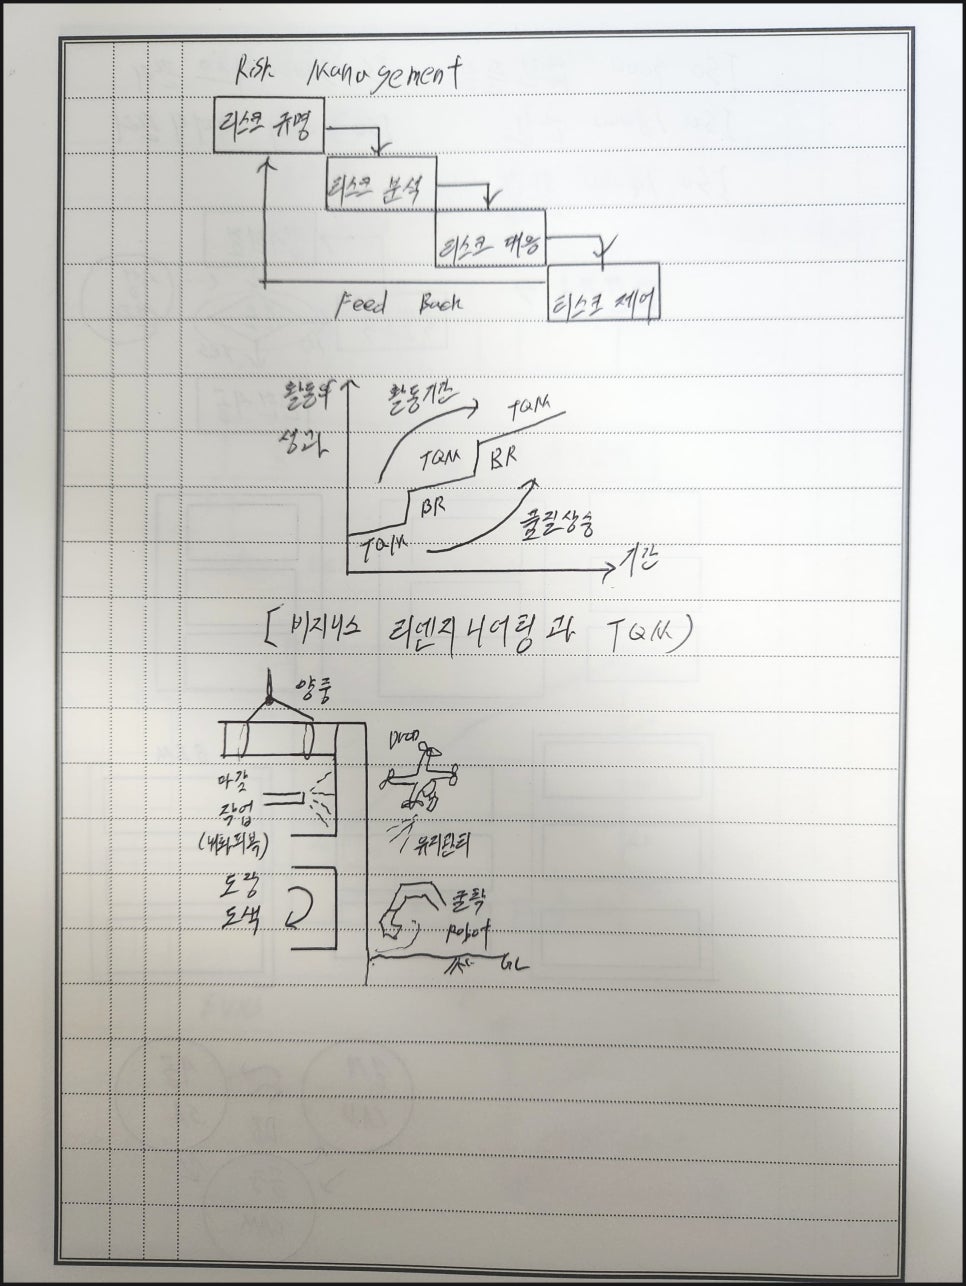 Risk Management
리스크 규명
리스크 분석
리스크 대응
리스크 제어
Feed Back
활동의
성과
활동기간
TQM
TQM
BR
BR
TQM
품질상승
기간
[비지니스 리엔지니어링과 TQM)
양중
마감
작업
(내화피복)
Dron
유리판티
도장
도색
굴착
Robot
GL